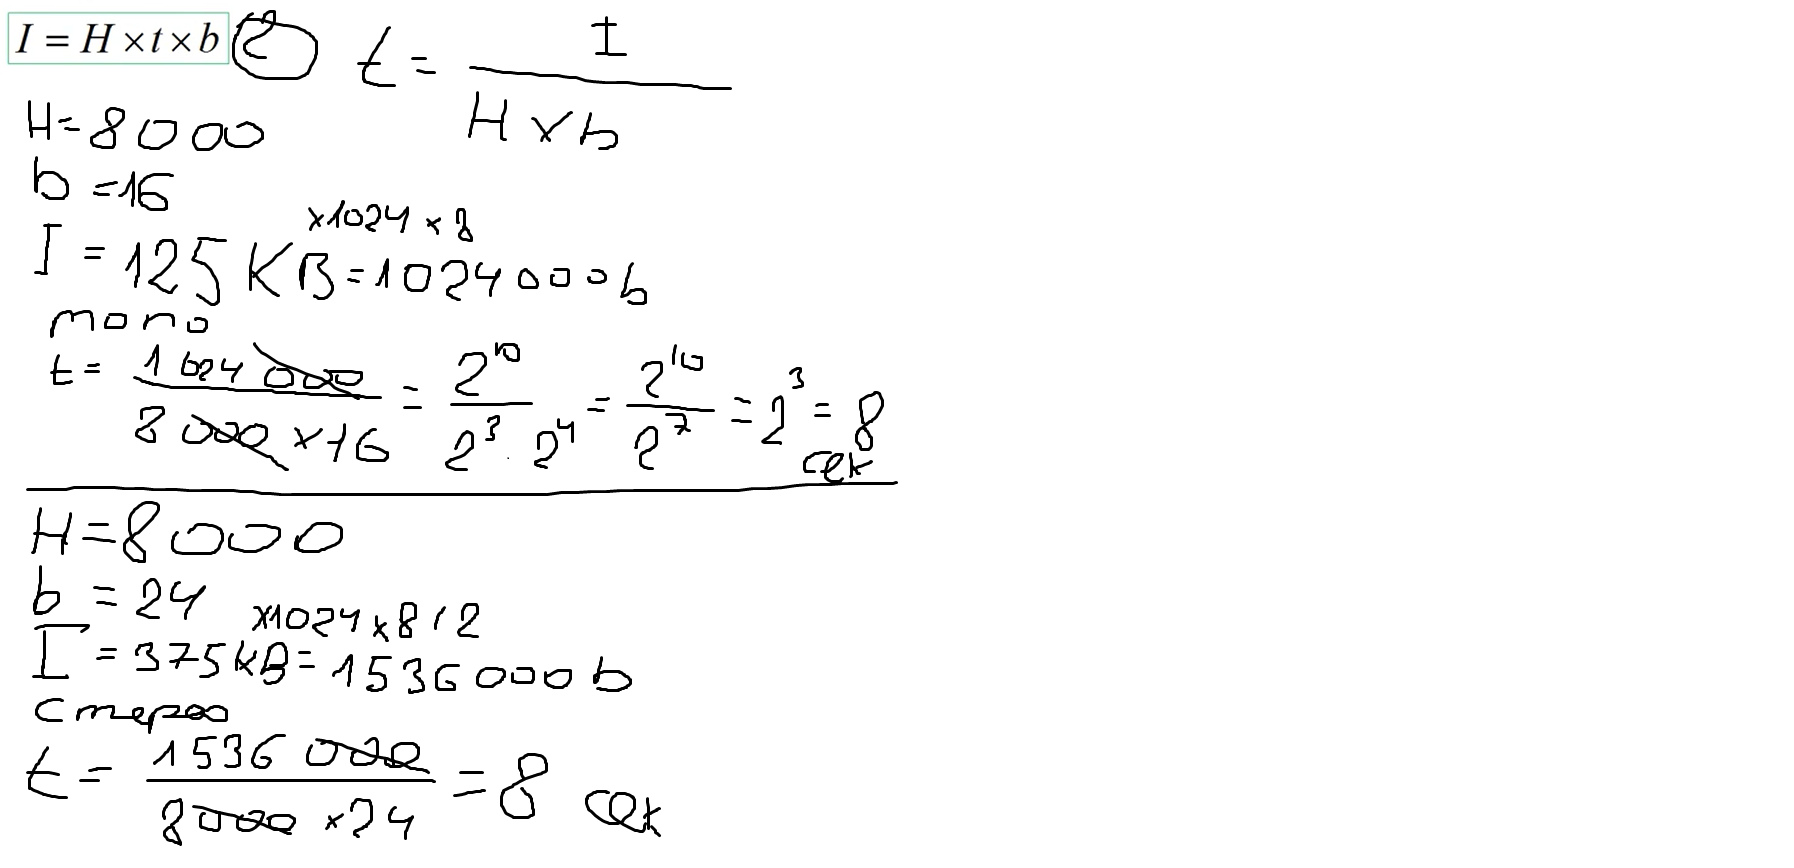 I = H × t × b 2 t = I / H × b
H = 8000
b = 16
×1024 × 8
I = 125 KB = 1024000b
моно
t = 1024 000 / 8 000 × 16 = 2^10 / 2^3 · 2^4 = 2^10 / 2^7 = 2^3 = 8 сек
H = 8000
b = 24
×1024 × 8 / 2
I = 375 KB = 1536000 b
стерео
t = 1536 000 / 8000 × 24 = 8 сек